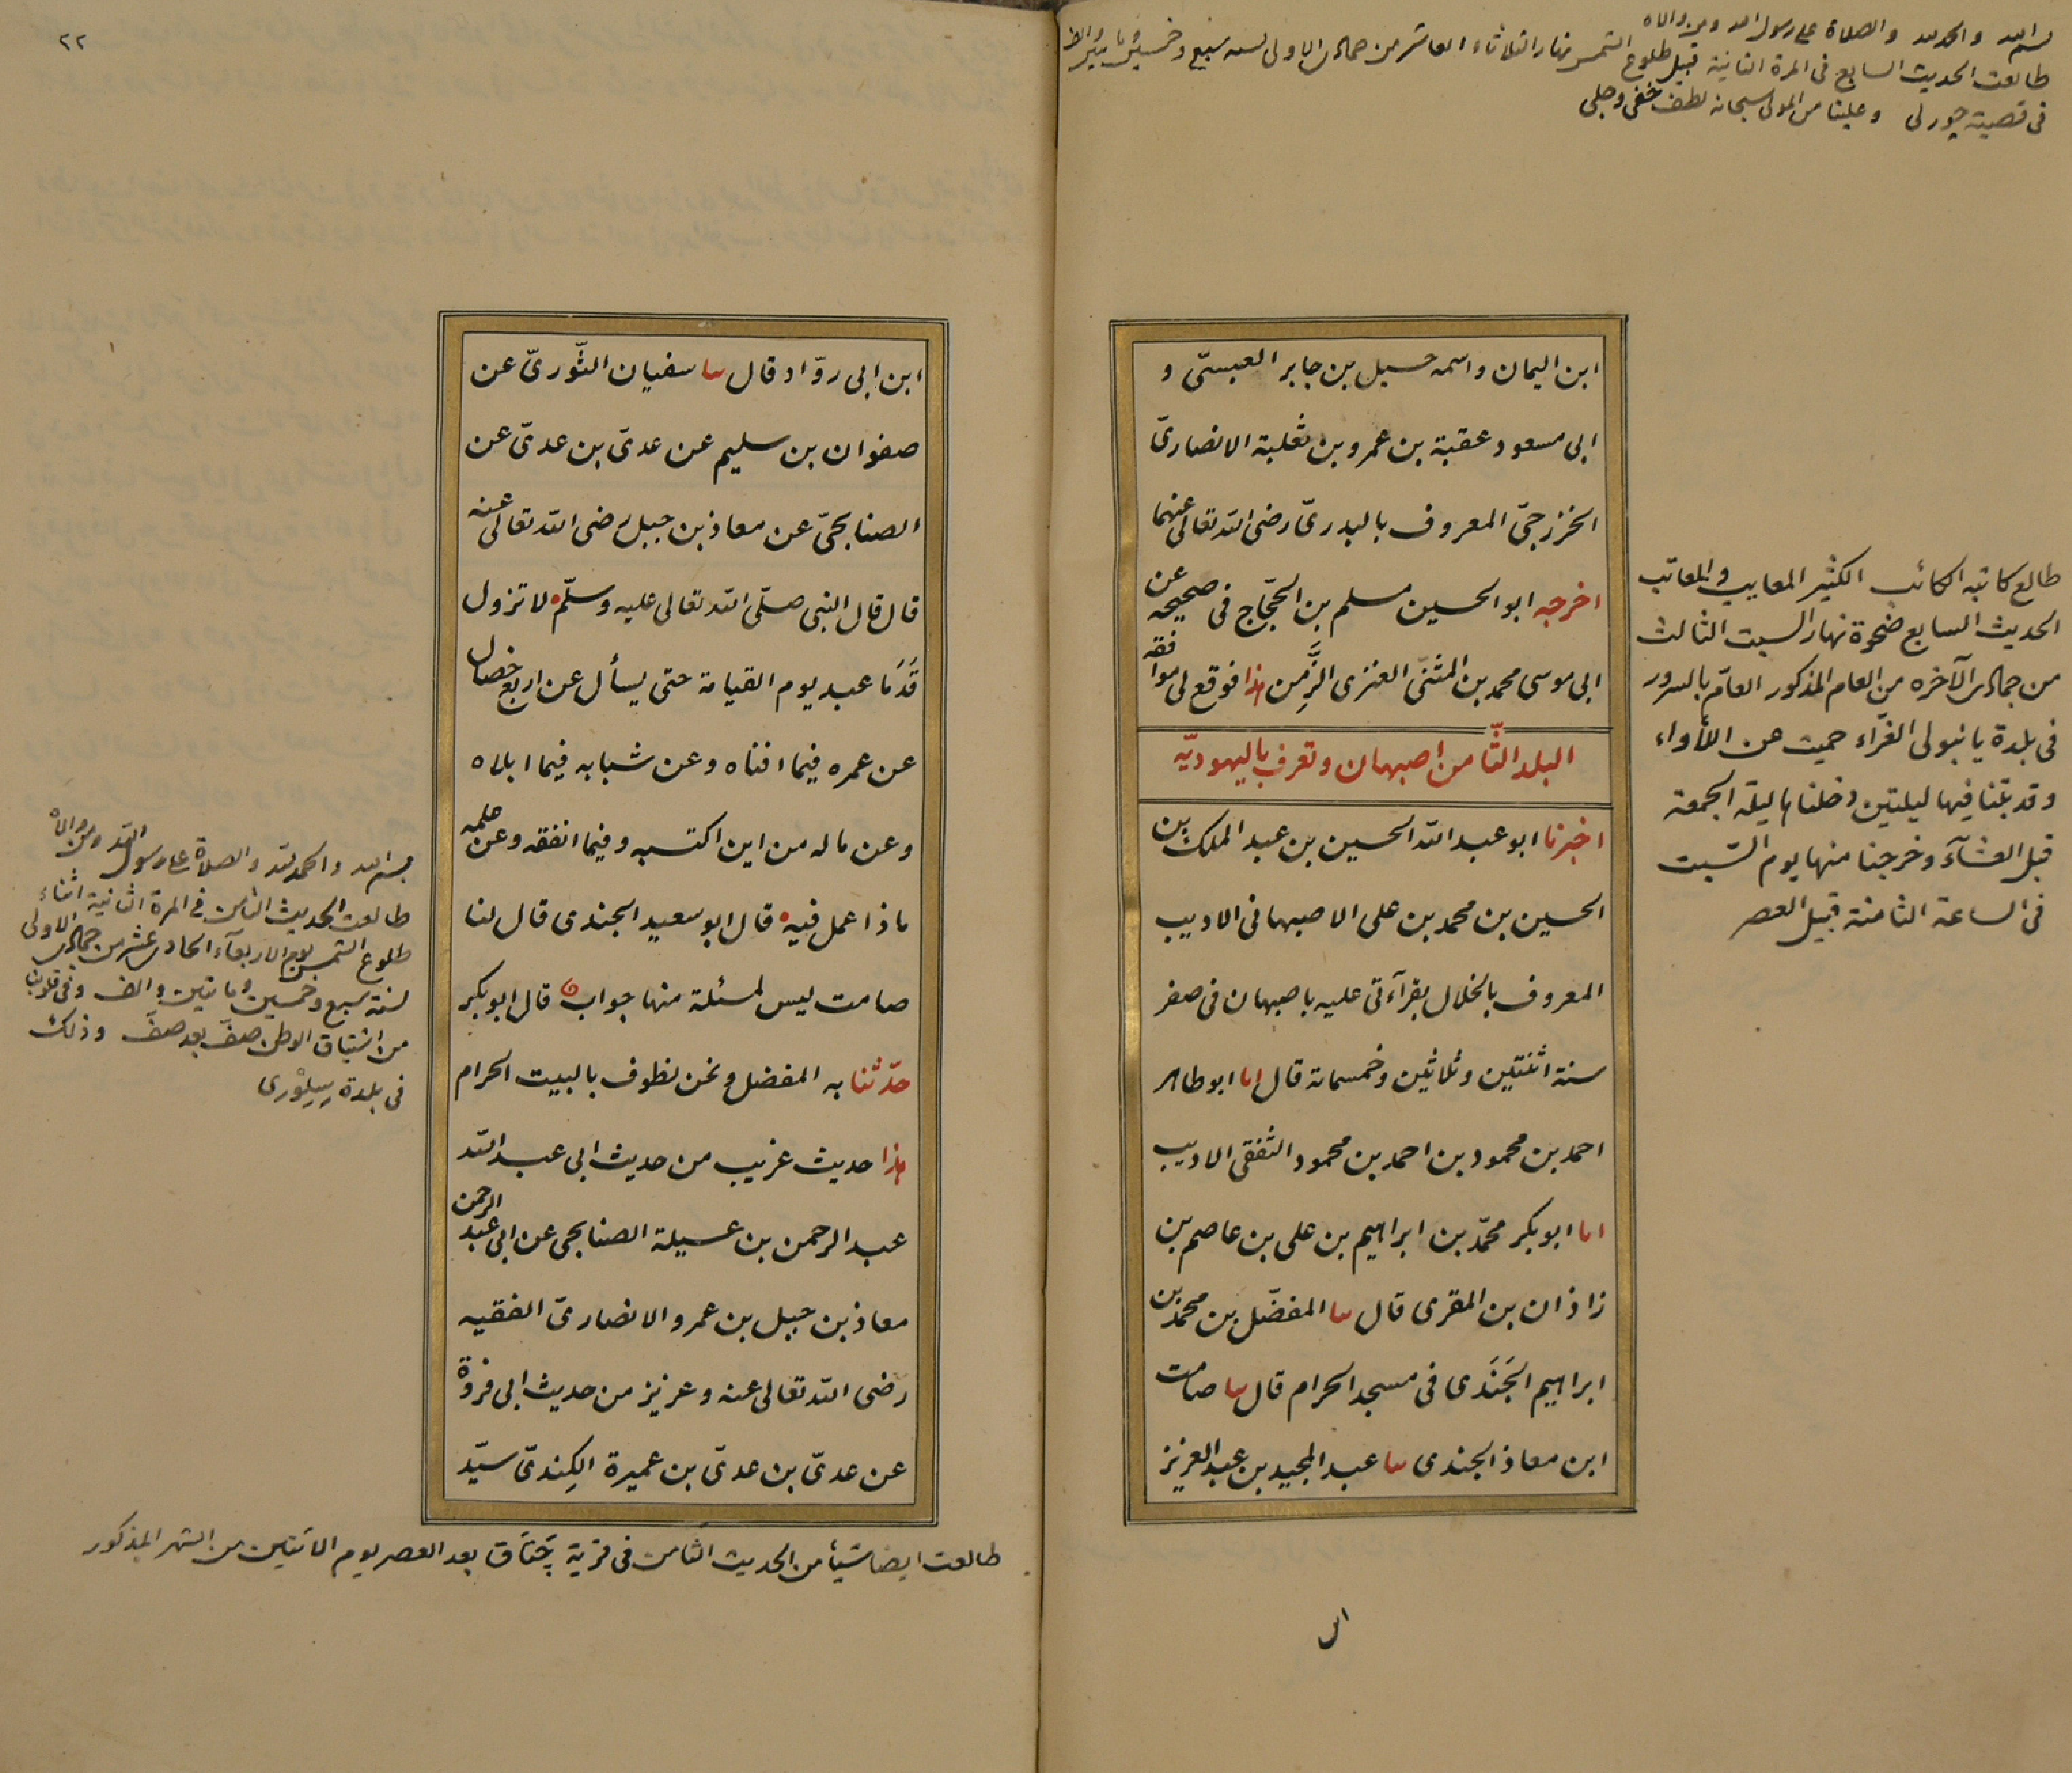 بسم الله والحمد لله والصلاة على رسول الله ومن والاه
طالعت الحديث السابع فى المرة الثانية قبيل طلوع الشمس نهار الثلاثاء العاشر من جمادى الاولى لسنة سبع وخمسين ومايتين والف
فى قصبة چورلى وعلينا من المولى سبحانه لطف خفى وجلى
ابن اليمان واسمه حسيل بن جابر العبسىّ و
ابى مسعود عقبة بن عمرو بن ثعلبة الانصارىّ
الخزرجىّ المعروف بالبدرىّ رضى الله تعالى عنهما
اخرجه ابو الحسين مسلم بن الحجّاج فى صحيحه عن
ابى موسى محمد بن المثنّى العنزى الزَّمِن هذا فوقع لى موافقه
البلد الثّامن اصبهان وتعرف باليهوديّه
اخبرنا ابو عبد الله الحسين بن عبد الملك بن
الحسين بن محمد بن على الاصبهانى الاديب
المعروف بالخلال بقرآءتى عليه باصبهان فى صفر
سنة اثنتين وثلاثين وخمسماة قال انا ابو طاهر
احمد بن محمود بن احمد بن محمود الثقفى الاديب
انا ابو بكر محمّد بن ابراهيم بن على بن عاصم بن
زاذان بن المقرى قال نا المفضّل بن محمد بن
ابراهيم الجَنَدى فى مسجد الحرام قال نا صامت
ابن معاذ الجندى نا عبد المجيد بن عبد العزيز
طالع كاتبه الكائب الكثير المعايب والمعاتب
الحديث السابع ضحوة نهار السبت الثالث
من جمادى الآخره من العام المذكور العامّ بالسرور
فى بلدة يانبولى الغرّاء حميت عن اللأواء
وقد بتنا فيها ليلتين دخلناها ليلة الجمعة
قبل العشآء وخرجنا منها يوم السّبت
فى الساعة الثامنة قبيل العصر
٢٢
ابن ابى روّاد قال نا سفيان الثّورىّ عن
صفوان بن سليم عن عدىّ بن عدىّ عن
الصنابحىّ عن معاذ بن جبل رضى الله تعالى عنه
قال قال النبى صلّى الله تعالى عليه وسلّم لا تزول
قَدَمَا عبد يوم القيامة حتى يسأل عن اربع خصال
عن عمره فيما افناه وعن شبابه فيما ابلاه
وعن ماله من اين اكتسبه وفيما انفقه وعن علمه
ماذا عمل فيه قال ابو سعيد الجندى قال لنا
صامت ليس لمسئلة منها جواب قال ابو بكر
حدّثنا به المفضل ونحن نطوف بالبيت الحرام
هذا حديث غريب من حديث ابى عبد الله
عبد الرحمن بن عسيلة الصنابحى عن ابى عبد الرحمن
معاذ بن جبل بن عمرو الانصارىّ الفقيه
رضى الله تعالى عنه وعزيز من حديث ابى فروة
عن عدىّ بن عدىّ بن عميرة الكِندىّ سيّد
بسم الله والحمد لله والصلاة على رسول الله ومن والاه
طالعت الحديث الثامن فى المرة الثانية اثناء
طلوع الشمس يوم الاربعآء الحادى عشر من جمادى الاولى
لسنة سبع وخمسين ومايتين والف وفى قلوبنا
من اشتياق الوطن صفّ بعد صفّ وذلك
فى بلدة سِيلِوْرى
طالعت ايضا شيئا من الحديث الثامن فى قرية چَتَاق بعد العصر يوم الاثنين من الشهر المذكور